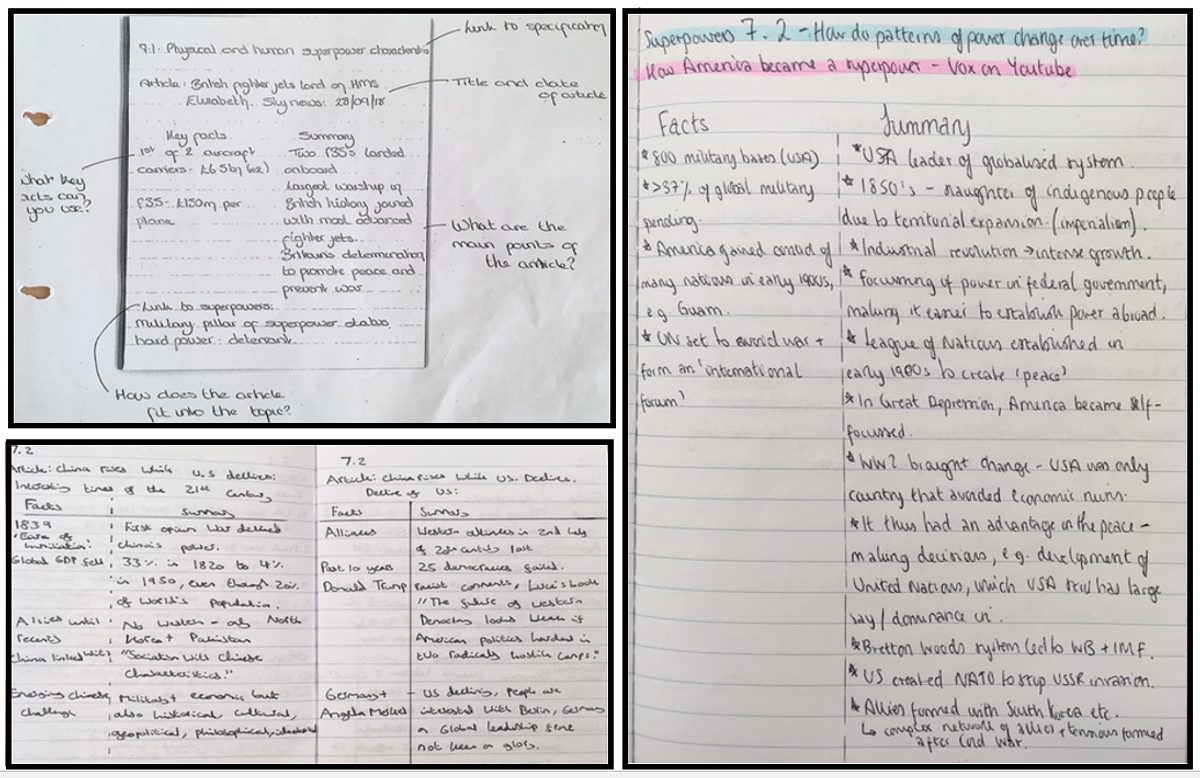 Link to specification
9.1: Physical and human superpower characteristic
Article: British fighter jets land on HMS
Elizabeth. Sky news: 28/09/18
Title and date
of article
Key facts
Summary
1st of 2 aircraft
carriers - £6.5bn (x2)
F35 - £150m per
plane
Two F35's landed
onboard
Largest warship in
British history joined
with most advanced
fighter jets.
Britain's determination
to promote peace and
prevent war
What key
acts can
you use?
What are the
main points of
the article?
Link to superpowers:
Military pillar of superpower status,
hard power: deterrent
How does the article
fit into the topic?
7.2
Article: China rises while U.S declines:
Interesting times of the 21st Century
Facts
Summary
1839
First opium war declined
China's power.
Global GDP fell
33% in 1820 to 4%
in 1950, even though 20%
of World's Population.
Allies until
recents
No Western - only North
Korea + Pakistan
China linked with
"Socialism with Chinese
Characteristics."
Emerging Chinese
challenge
Military + economic but
also historical, cultural,
geopolitical, philosophical,
7.2
Article: China rises while US. Declines.
Decline of US:
Facts
Summary
Alliances
Western alliances in 2nd half
of 20th century lost
Past 10 years
25 democracies failed.
Donald Trump
racist comments, Luce's book
"The future of western
Democracy looks bleak if
American politics hardens in
two radically hostile camps."
Germany +
Angela Merkel
- US declining, people are
interested with Berlin, Germany
a Global leadership
not been on glory.
Superpowers 7.2 - How do patterns of power change over time?
How America became a superpower - Vox on Youtube
Facts
Summary
* 800 military bases (USA)
* >37% of global military
spending.
* America gained control of
many nations in early 1900s,
e.g. Guam.
* UN set to avoid war +
form an 'international
forum'
* USA leader of globalised system
* 1850's - slaughter of indigenous people
due to territorial expansion. (imperialism).
* Industrial revolution → intense growth.
* Focussing of power in federal government,
making it easier to establish power abroad.
* League of Nations established in
early 1900s to create 'peace'
* In Great Depression, America became self-
focussed.
* WW2 brought change - USA was only
country that avoided economic ruin.
* It thus had an advantage in the peace-
making decisions, e.g. development of
United Nations, which USA now has large
say / dominance in.
* Bretton Woods system led to WB + IMF.
* US created NATO to stop USSR invasion.
* Allies formed with South Korea etc.
↳ complex network of allies + tensions formed
after Cold War.